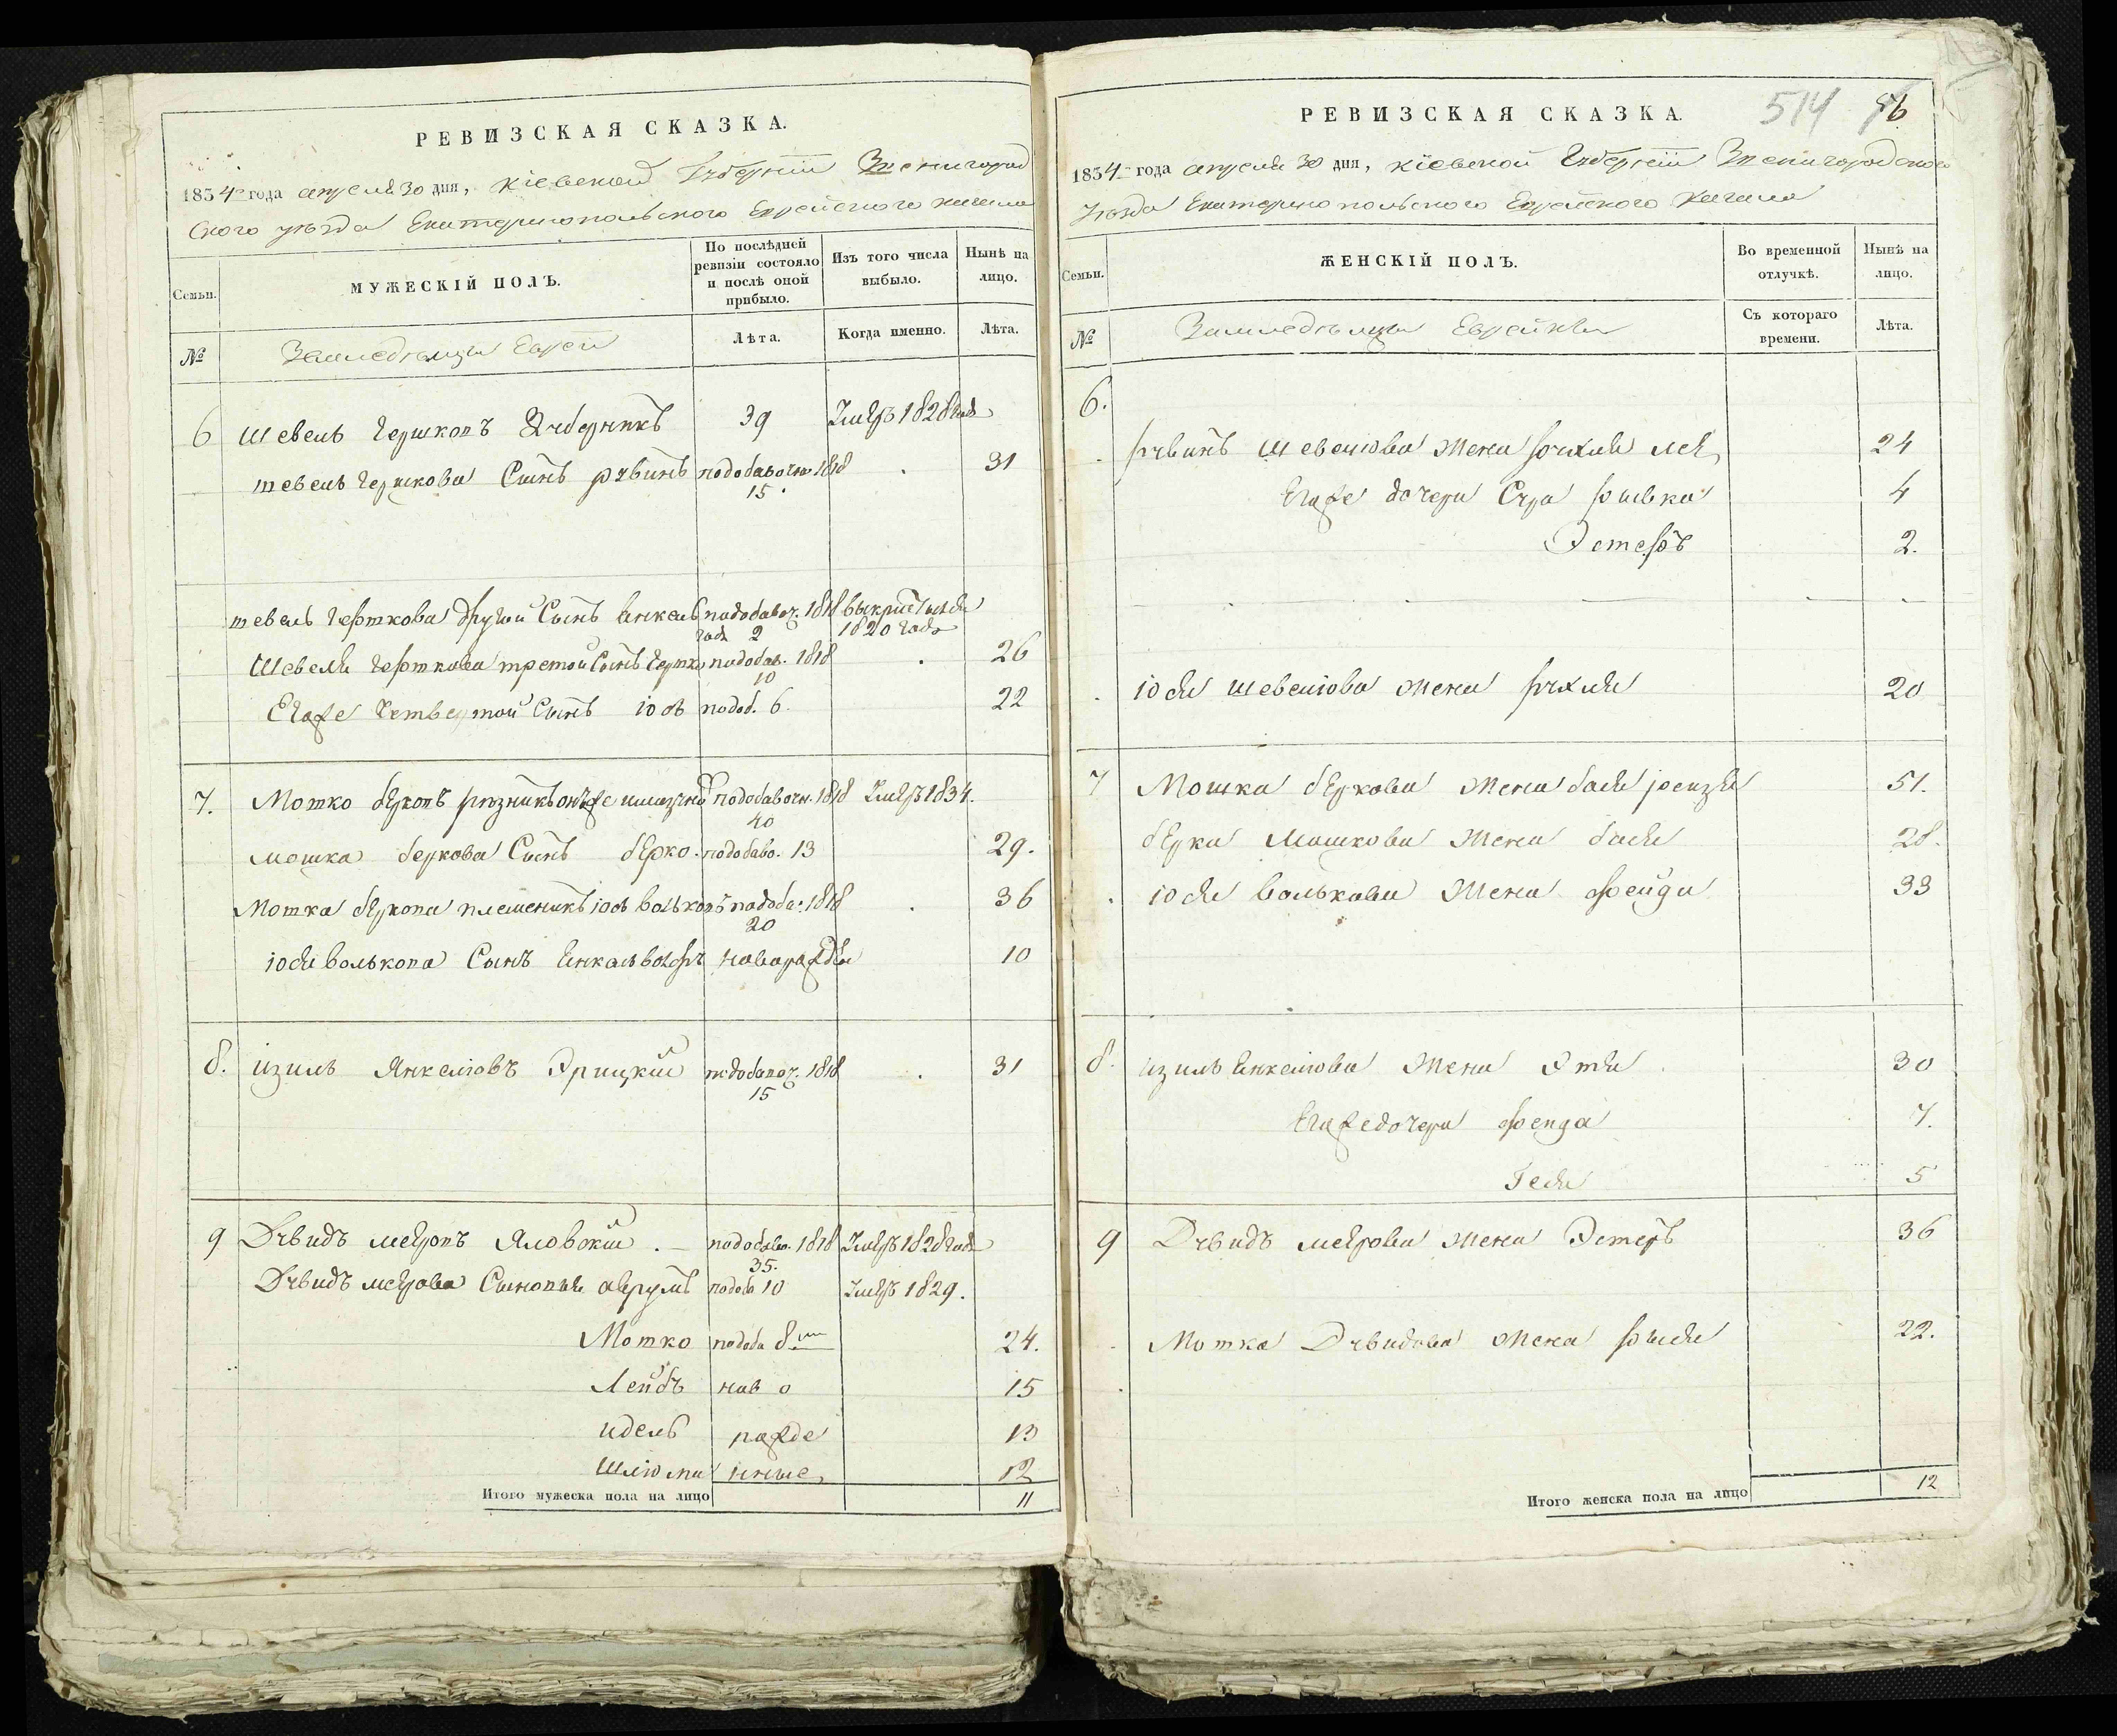 РЕВИЗСКАЯ СКАЗКА.
1834 года апреля 30 дня, Кіевской Губерніи Звенигород
ского уѣзда Екатеринопольского Еврейского кагала
Семьи.
МУЖЕСКІЙ ПОЛЪ.
По послѣдней ревизіи состояло и послѣ оной прибыло.
Изъ того числа выбыло.
Нынѣ на лицо.
№
Земледельцы Евреи
Лѣта.
Когда именно.
Лѣта.
6 Шевель Гершковъ 39 Умеръ 1828 года
Шевель Гершкова Сынъ Рувинъ подобавочн. 1818 31
15
Шевель Гершкова другой Сынъ Янкель подобавоч. 1818
года 2 1820 года
Шевеля Гершкова третой Сынъ Гершко подобав. 1818 26
10
Егоже Четвертой Сынъ Іось подоб. 6. 22
7. Мошко Берковъ подобавочн. 1818 Умеръ 1834.
40
Мошка Беркова Сынъ Берко. подобаво. 13 29.
Мошка Беркова племеникъ Іось Вольковъ подоба. 1818 36
20
Іося Волькова Сынъ Янкель новорожде 10
8. Изиль Янкеліовъ подобавоч. 1818 31
15
9 Дувидъ Меяровъ Яловскій . — подобаво. 1818 Умеръ 1828 года
35.
Дувидъ Меярова Сыновья Аврумъ подоба 10 Умеръ 1829.
Мошко подоба 8 24.
Лейбъ ново 15
Идель рожде 13
Шліома нные 12
Итого мужеска пола на лицо 11
РЕВИЗСКАЯ СКАЗКА. 514
1834 года апреля 30 дня, Кіевской Губерніи Звенигородского
Уѣзда Екатеринопольского Еврейского Кагала
Семьи.
ЖЕНСКІЙ ПОЛЪ.
Во временной отлучкѣ.
Нынѣ на лицо.
№
Земледельцы Еврейки
Съ котораго времени.
Лѣта.
6.
Рувинъ Шевеліова Жена Рухля Лея 24
Егоже дочери Сура Ривка 4
Эстеръ 2.
Іося Шевеліова Жена Рухля 20
7 Мошка Беркова Жена Бася 51.
Берка Мошкова Жена Бася 28.
Іося Волькова Жена Фейга 33
8. Изиль Янкеліова Жена 30
Егоже дочери Фейга 7.
Гася 5
9 Дувидъ Меярова Жена Эстеръ 36
Мошка Дувидова Жена 22.
Итого женска пола на лицо 12